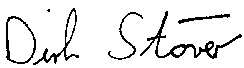 Dirk Stöver